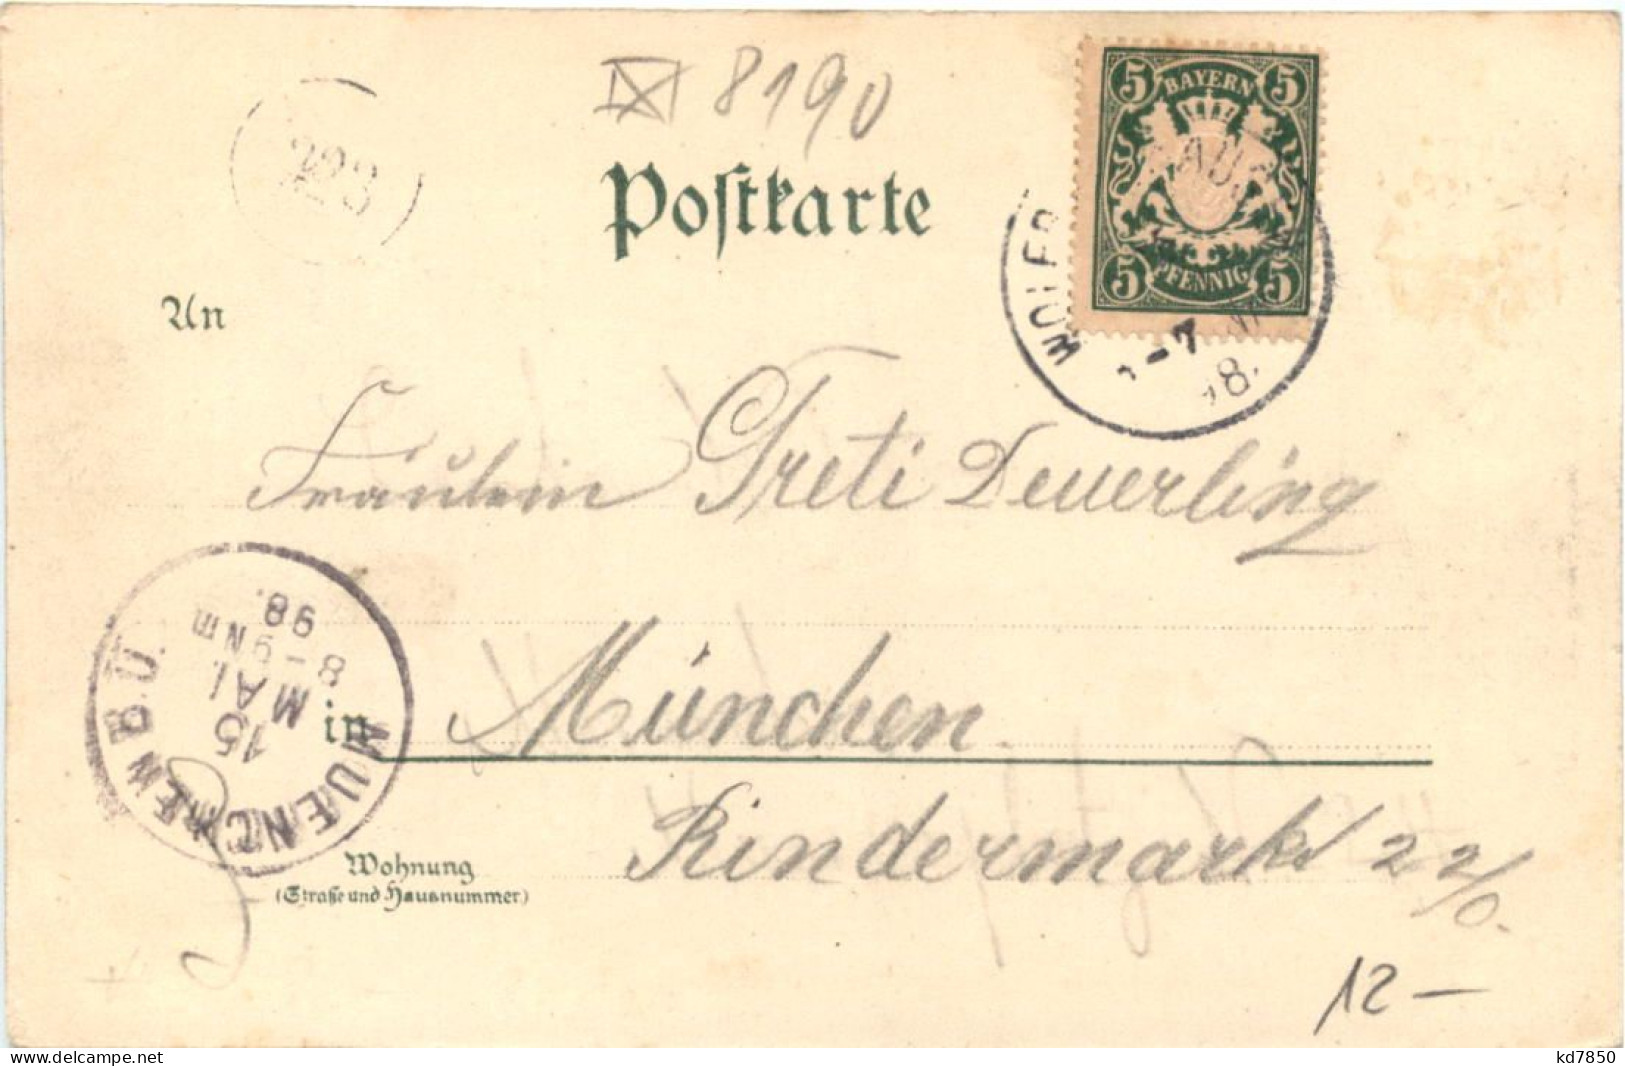 8190
5 BAYERN 5
5 PFENNIG 5
223
Postkarte
An
Fräulein Greti Deuerling
MUENCHEN BU.
15
MAI.
8-9 NM
98.
in München
Rindermarkt 22/0.
Wohnung
(Straße und Hausnummer)
12 -
www.delcampe.net
kd7850